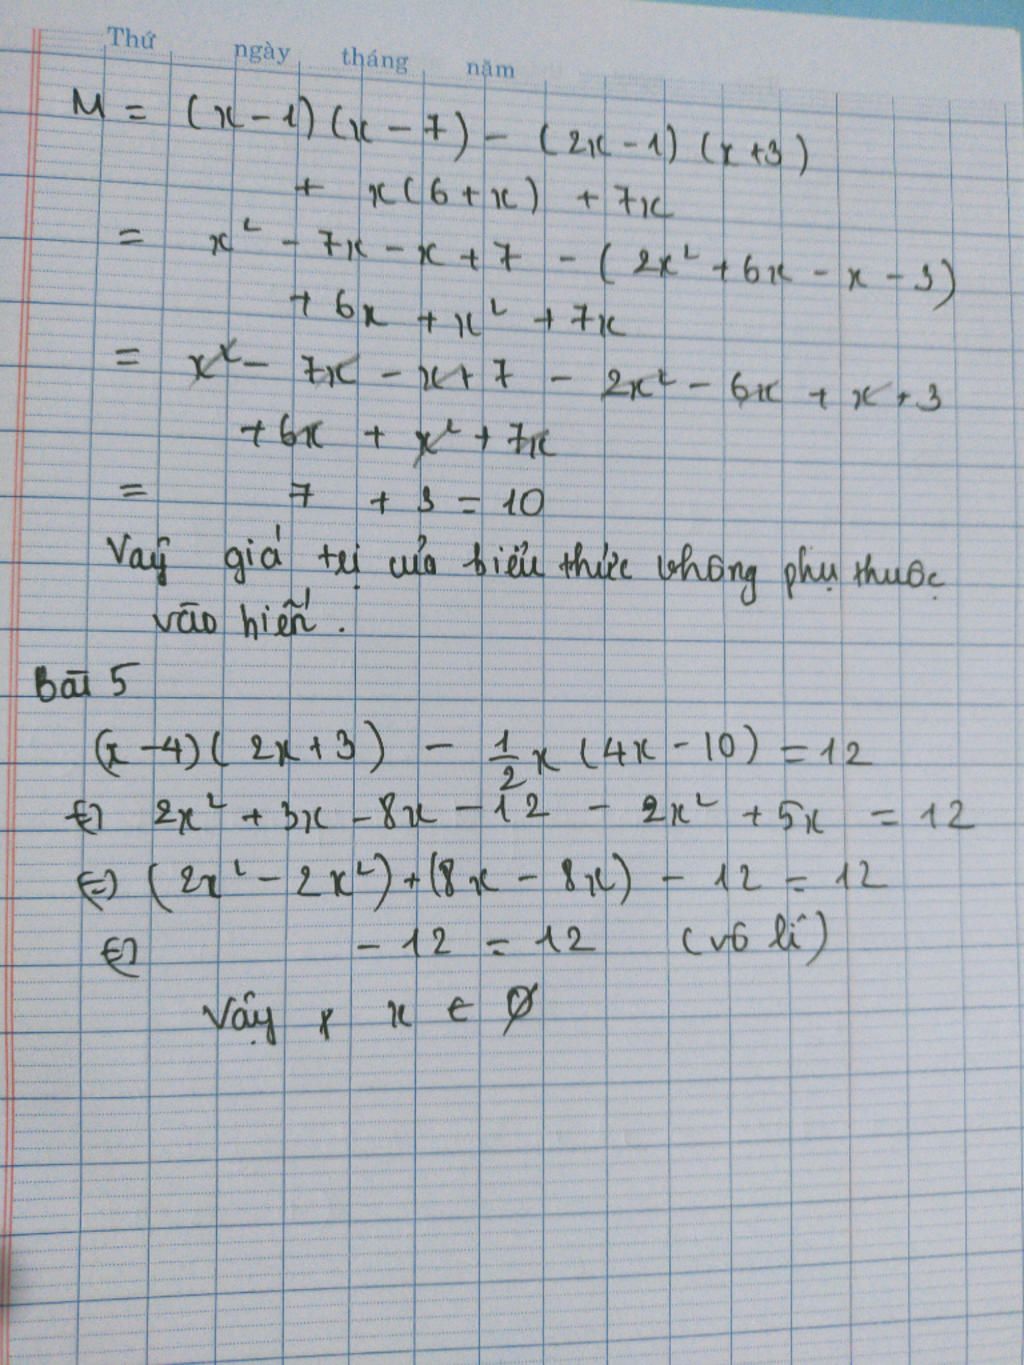 Thứ ngày tháng năm
M = (x - 1)(x - 7) - (2x - 1)(x + 3)
+ x(6 + x) + 7x
= x² - 7x - x + 7 - (2x² + 6x - x - 3)
+ 6x + x² + 7x
= x² - 7x - x + 7 - 2x² - 6x + x + 3
+ 6x + x² + 7x
= 7 + 3 = 10
Vaỹ giá trị của biểu thức không phụ thuộc
vào biến.
Bài 5
(x - 4)(2x + 3) - 1/2 x (4x - 10) = 12
⇔ 2x² + 3x - 8x - 12 - 2x² + 5x = 12
⇔ (2x² - 2x²) + (8x - 8x) - 12 = 12
⇔ - 12 = 12 (vô lí)
Vậy x x ∈ ∅